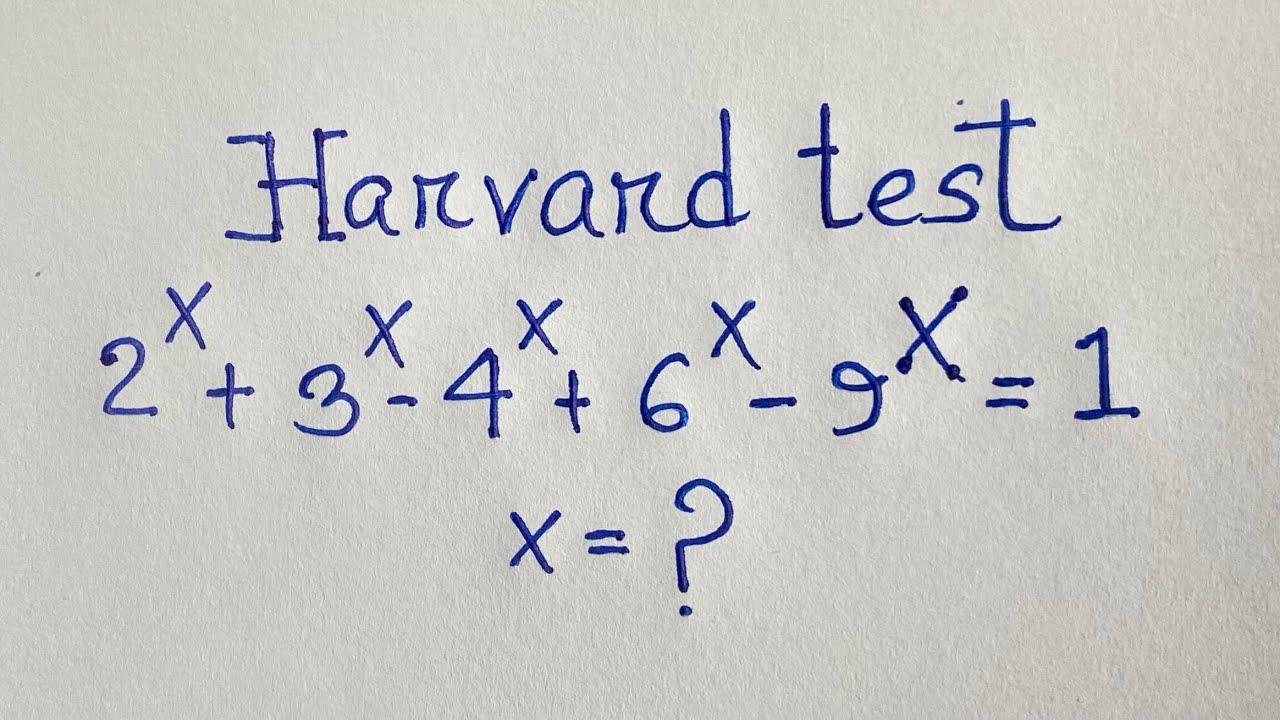 Harvard test
2^x + 3^x - 4^x + 6^x - 9^x = 1
x = ?